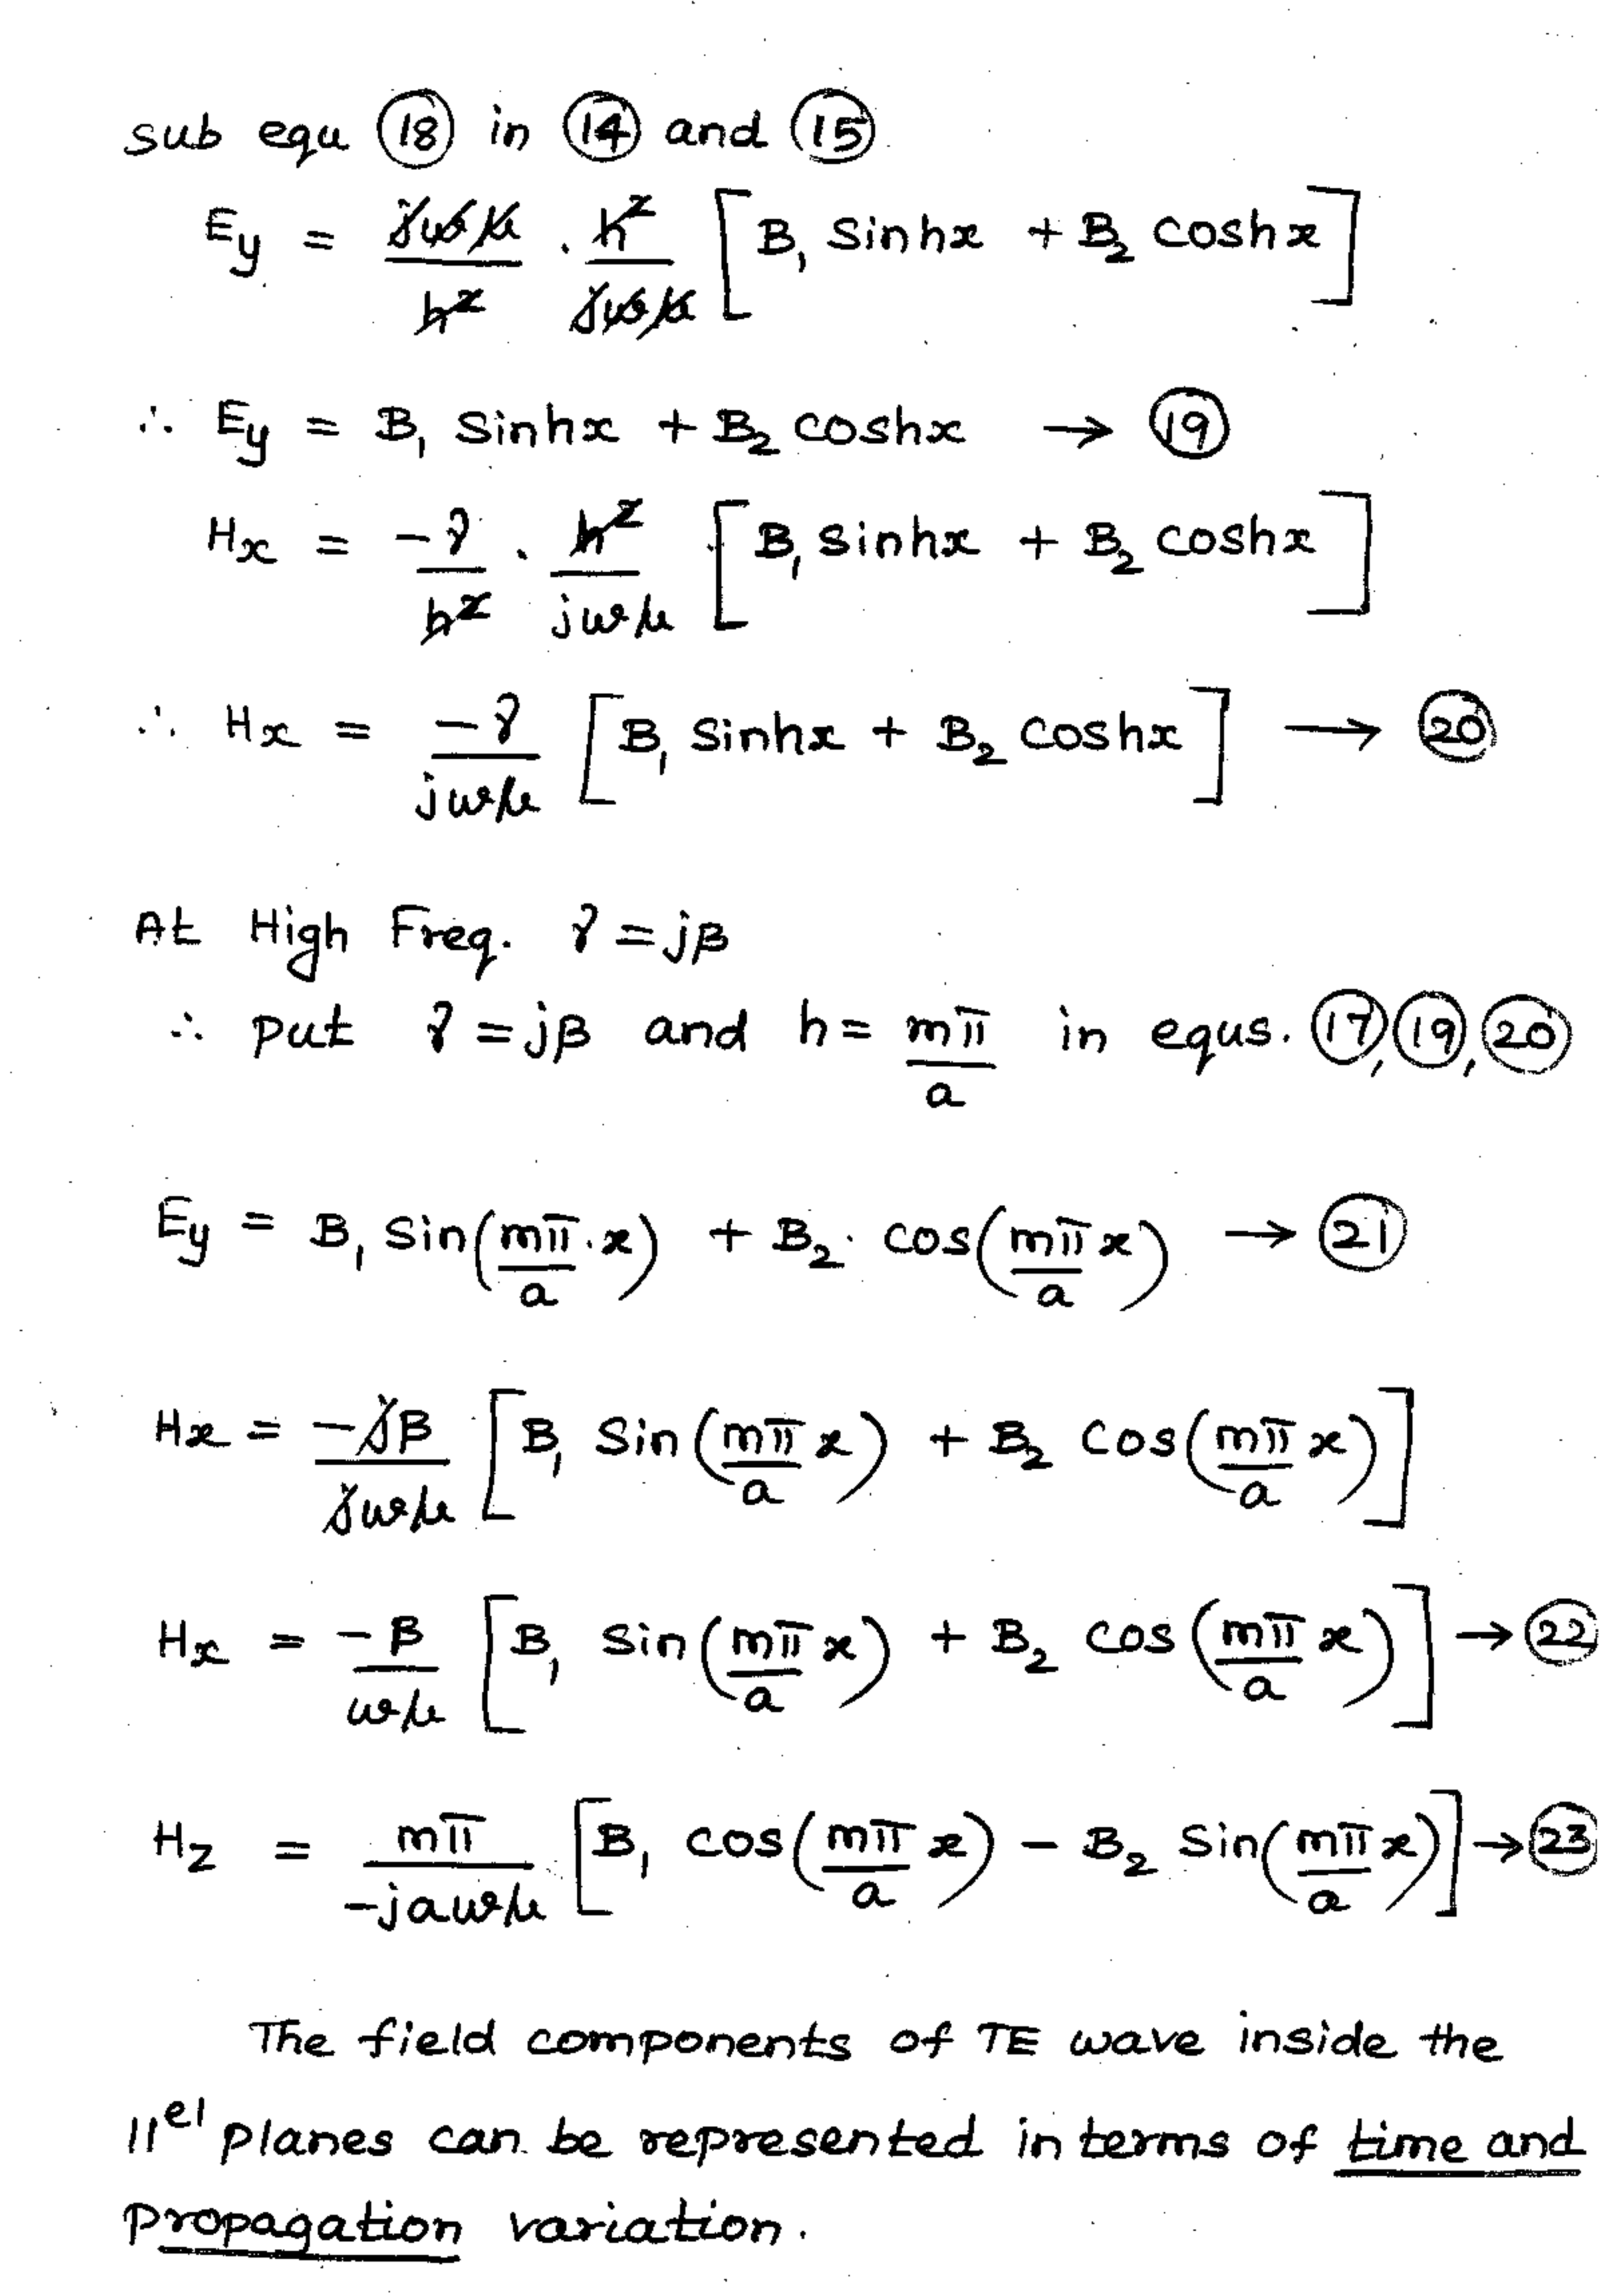 sub equ (18) in (14) and (15)
Ey = jωμ/h² . h²/jωμ [B₁ Sinhx + B₂ coshx]
∴ Ey = B₁ Sinhx + B₂ coshx → (19)
Hx = -γ/h² . h²/jωμ [B₁ Sinhx + B₂ coshx]
∴ Hx = -γ/jωμ [B₁ Sinhx + B₂ coshx] → (20)
At High Freq. γ = jβ
∴ put γ = jβ and h = mπ/a in equs. (17), (19), (20)
Ey = B₁ Sin(mπ/a . x) + B₂ . cos(mπ/a x) → (21)
Hx = -jβ/jωμ [B₁ Sin(mπ/a x) + B₂ cos(mπ/a x)]
Hx = -β/ωμ [B₁ Sin(mπ/a x) + B₂ cos(mπ/a x)] → (22)
Hz = mπ/-jaωμ [B₁ cos(mπ/a x) - B₂ Sin(mπ/a x)] → (23)
The field components of TE wave inside the
||el planes can be represented in terms of time and
propagation variation.